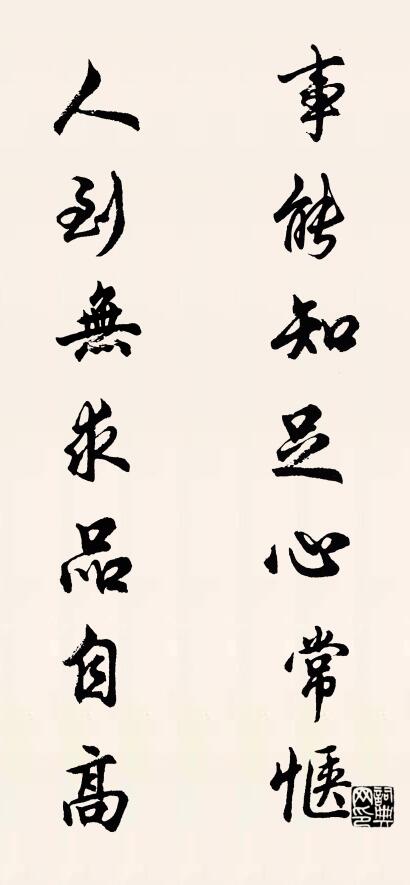 事能知足心常惬
人到無求品自高
詞典网印